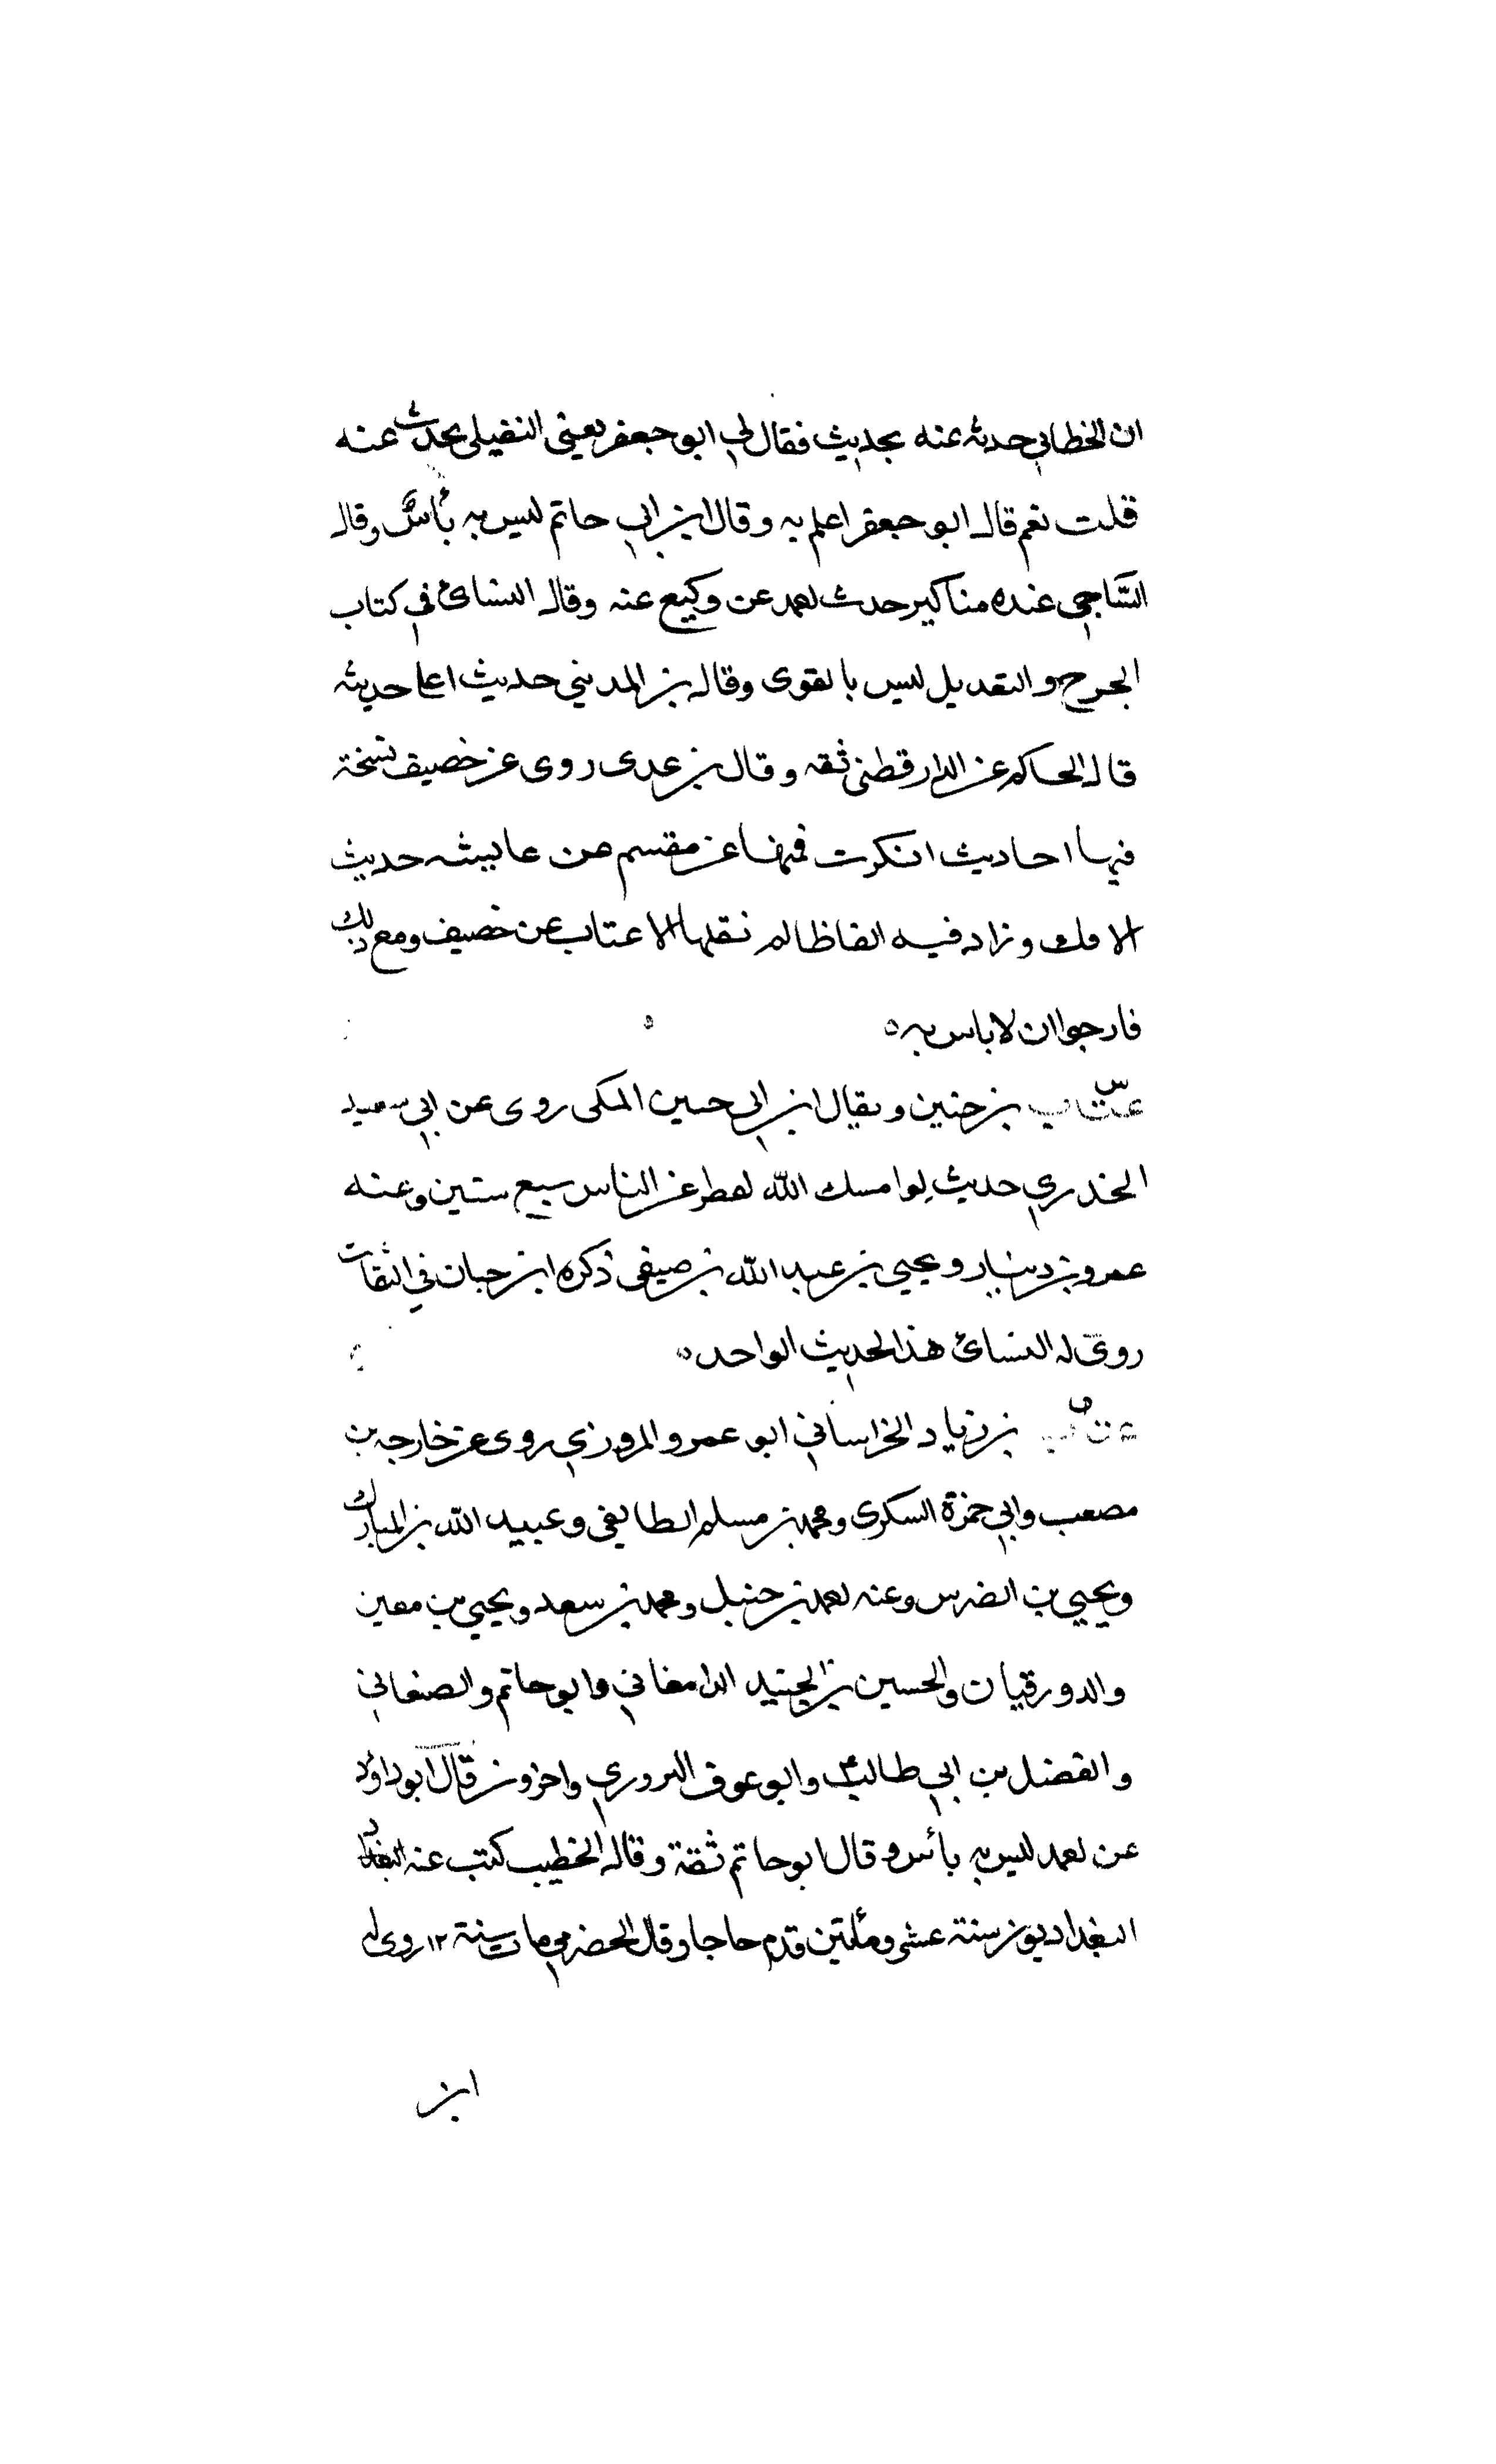 ان الخطابي حدثه عنه بحديث فقال لي ابو جعفر يعني النفيلي يحدث عنه
قلت نعم قال ابو جعفر اعلم به وقال ابن ابي حاتم ليس به بأس وقال
السَّاجي عنده مناكير حدث احمد عن وكيع عنه وقال النسائ في كتاب
الجرح والتعديل ليس بالقوى وقال بن المديني حديث اعلا حديثه
قال الحاكم عن الدارقطني ثقه وقال بن عدى روى عن خصيف نسخة
فيها احاديث انكرت فمنها عن مقسم عن عايشه حديث
الافك وزاد فيه الفاظا لم نقلها الا عتاب عن خصيف ومع ذلك
فارجوا ان لا باس به ه
عتّاب بن حنين ويقال ابن ابى حسين المكى روى عن ابي سعيد
الخدري حديث لو امسك الله القطر عن الناس سبع سنين وعنه
عمرو بن دينار ويحيي بن عبد الله بن صيفى ذكره ابن حبان في الثقات
روى له النسائ هذا الحديث الواحد ه
عتاب بن زياد الخراساني ابو عمرو المروزي روى عن خارجه بن
مصعب وابي حمزة السكرى ومحمد بن مسلم الطايفى وعبيد الله بن المبارك
ويحيي بن الضرس وعنه احمد بن حنبل ومحمد بن سعد ويحيي بن معين
والدورقيان والحسين بن الجنيد الدامغاني وابو حاتم والصغاني
والفضل بن ابي طالب وابو عوف البزوري واخرون قال ابو داؤد
عن احمد ليس به بأس وقال ابو حاتم ثقة وقال الخطيب كتب عنه
البغداديون سنة عشر ومأتين قدم حاجا وقال الحضرمي مات سنة ١٢ روى له
ابن